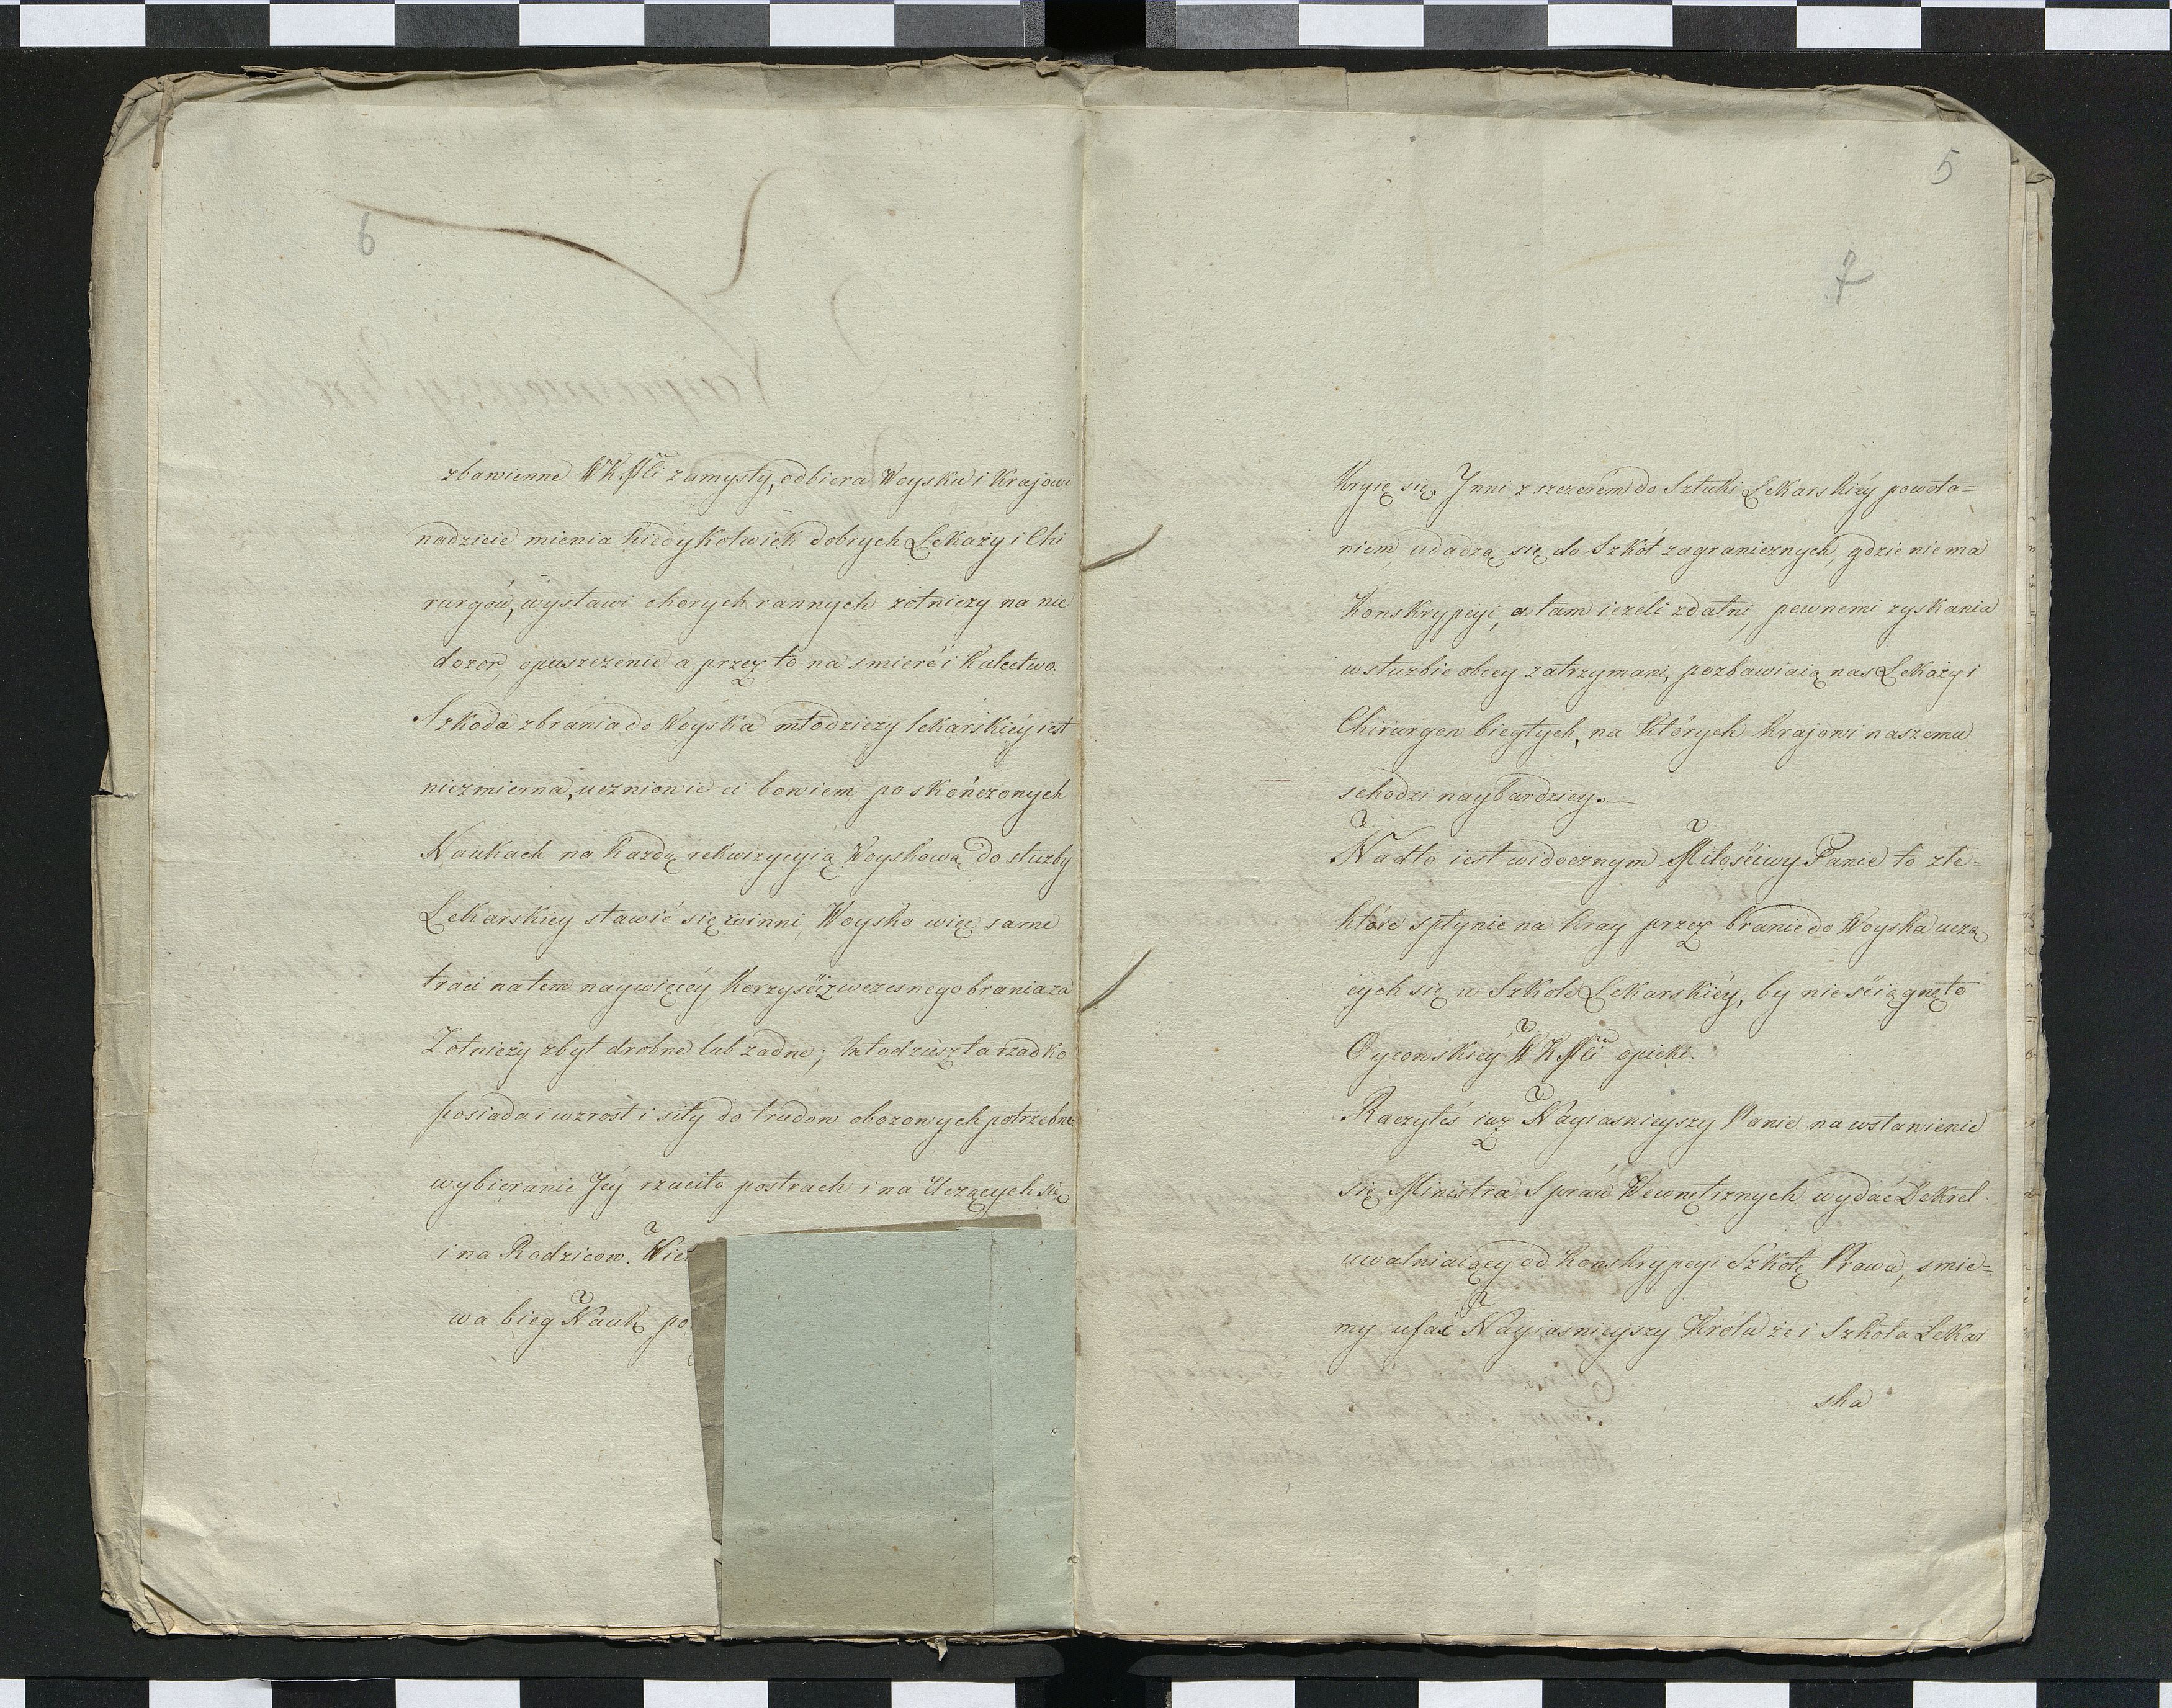 6
zbawienne WKMci zamysły, odbiera Woysku i Krajowi
nadzieie mienia kiedykolwiek dobrych Lekaży i Chi
rurgów, wystawi chorych rannych żołnierzy na nie
dozor, opuszczenie a przez to na smierć i Kalectwo.
Szkoda zbrania do Woyska młodzieży lekarskiéy iest
niezmierna, uczniowie ci bowiem po skończonych
Naukach na każdą rekwizycyią Woyskową do służby
Lekarskiey stawić się winni, Woysko więc samo
traci na tem naywięcéy korzyści z wczesnego brania za
Zołnieży zbyt drobne lub żadne; młodzież ta rzadko
posiada i wzrost i siły do trudow obozowych potrzebne
wybieranie Jéy rzuciło postrach i na Uczących się
i na Rodzicow. Wie
wa bieg Nauk po
5
7
Kryię się. Ynni z szczerém do Sztuki Lekarskiéy powoła=
niem, udadzą się do Szkół zagranicznych, gdzie nie ma
Konskrypcyi, a tam ieżeli zdatni, pewnemi zyskania
w służbie obcey zatrzymani, pozbawiaią nas Lekaży i
Chirurgow biegłych, na których Krajowi naszemu
schodzi naybardziey._
Nadto iest widocznym Miłościwy Panie to złe=
które spłynie na kray przez branie do Woyska uczą
cych się w Szkole Lekarskiéy, by nie ściągnęło
Oycowskiéy WKMci opieki.
Raczyłeś iuz Nayiasnieyszy Panie na wstawienie
się Ministra Spraw Wewnętrznych wydać Dekret
uwalniaiący od Konskrypcyi Szkołę Prawa, smie=
my ufać Nayiasnieyszy Królu że i Szkoła Lekar
ska